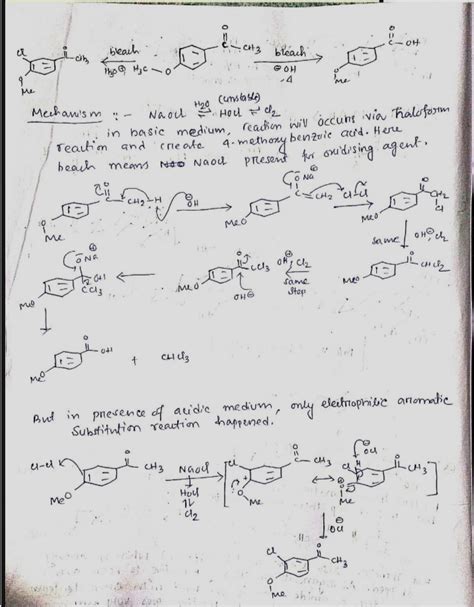 Cl O CH3 bleach H3O⊕ H3C-O O C-CH3 bleach ⊖OH O C-OH
OMe OMe
Mechanism :- NaOCl H2O ⇌ HOCl (unstable) ⇌ Cl2
in basic medium, reaction will occurs via Haloform
reaction and create 4-methoxy benzoic acid. Here
beach means NaOCl present for oxidising agent.
O C-CH2-H ⊖OH O Na⊕ C=CH2 Cl-Cl O CH2 Cl
OMe MeO MeO
same OH⊖, Cl2
O Na⊕ OH CCl3 O CCl3 OH⊖, Cl2 same step O CHCl2
MeO MeO OH⊖ MeO
O OH + CHCl3
MeO
But in presence of acidic medium, only electrophilic aromatic
Substitution reaction happened.
Cl-Cl O CH3 NaOCl Cl O C-CH3 ↔ ⊖OCl H Cl O CH3
MeO HOCl O Me O Me
Cl2
⊖OCl
Cl O CH3
O Me